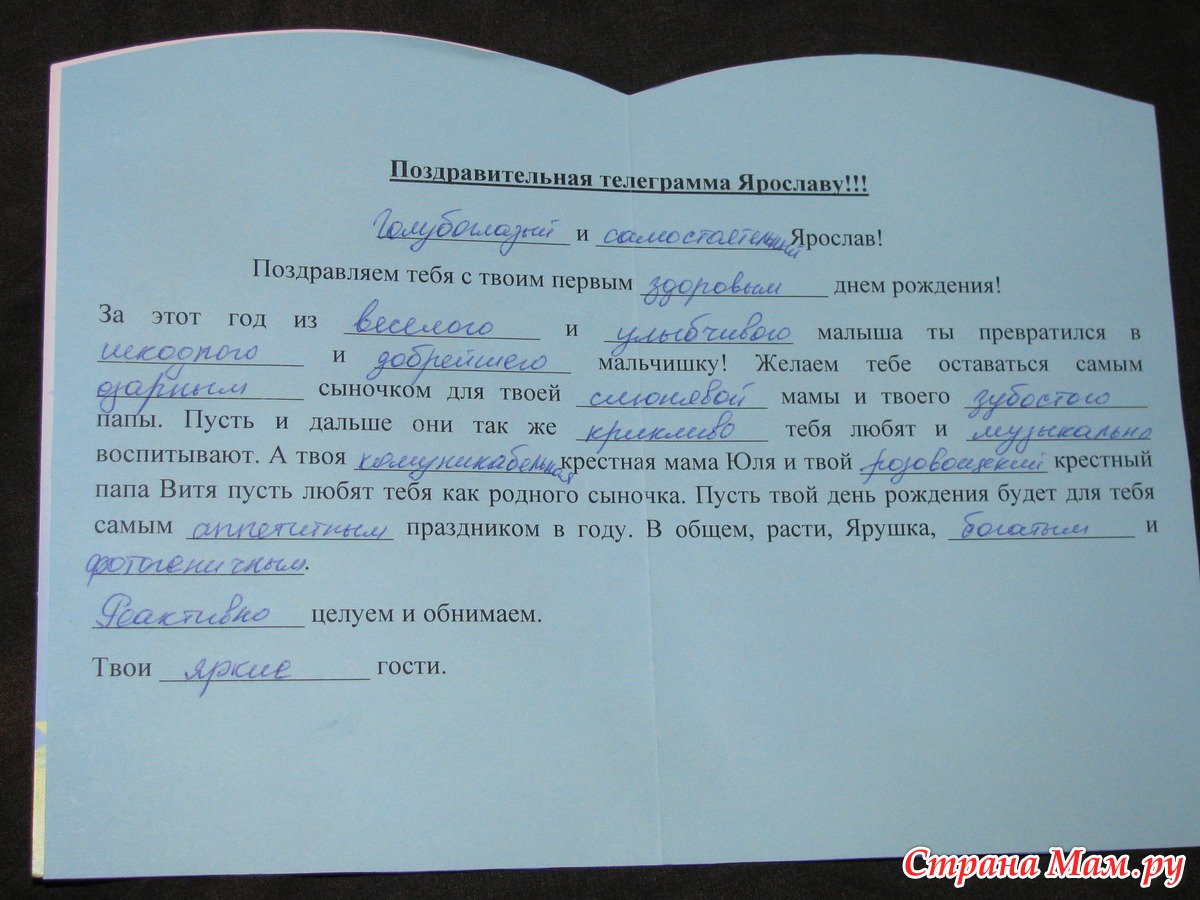 Поздравительная телеграмма Ярославу!!!
Голубоглазый и самостоятельный Ярослав!
Поздравляем тебя с твоим первым здоровым днем рождения!
За этот год из веселого и улыбчивого малыша ты превратился в
шкодного и добрейшего мальчишку! Желаем тебе оставаться самым
озарным сыночком для твоей слюнявой мамы и твоего зубостого
папы. Пусть и дальше они так же крикливо тебя любят и музыкально
воспитывают. А твоя комуникабельная крестная мама Юля и твой розовощекий крестный
папа Витя пусть любят тебя как родного сыночка. Пусть твой день рождения будет для тебя
самым аппетитным праздником в году. В общем, расти, Ярушка, богатым и
фотогеничным.
Реактивно целуем и обнимаем.
Твои яркие гости.
Страна Мам.ру